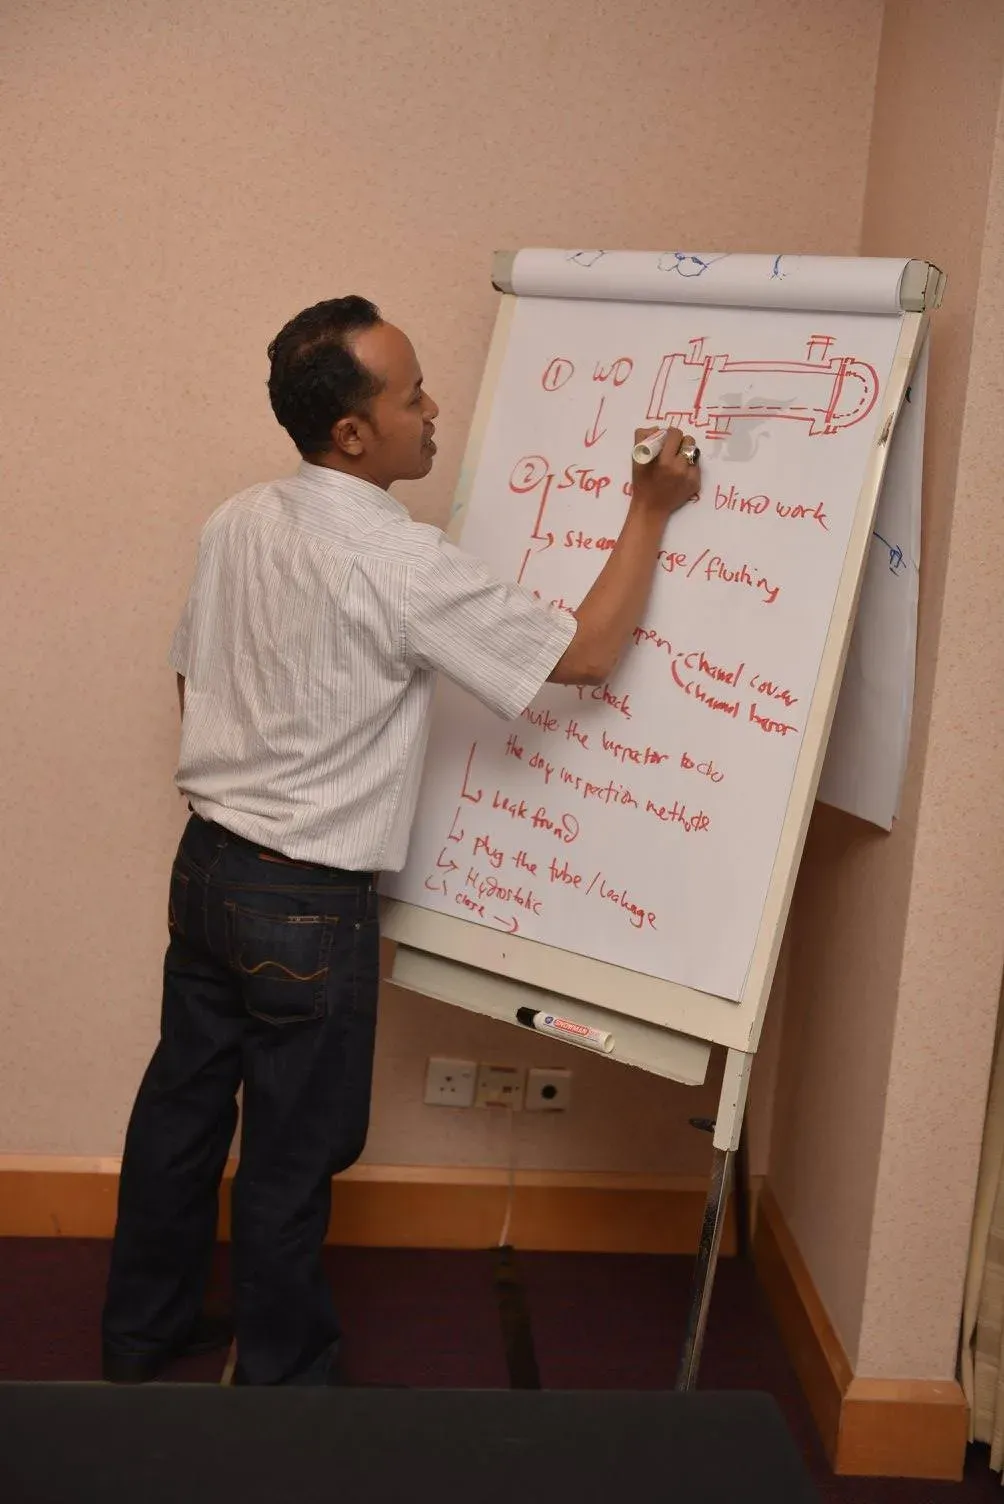 ① WO
② STOP blind work
Steam /flushing
open channel cover
channel
check
the Inspector to do
the day inspection methods
Leak found
plug the tube/leakage
Hydrostatic
close
SNOWMAN